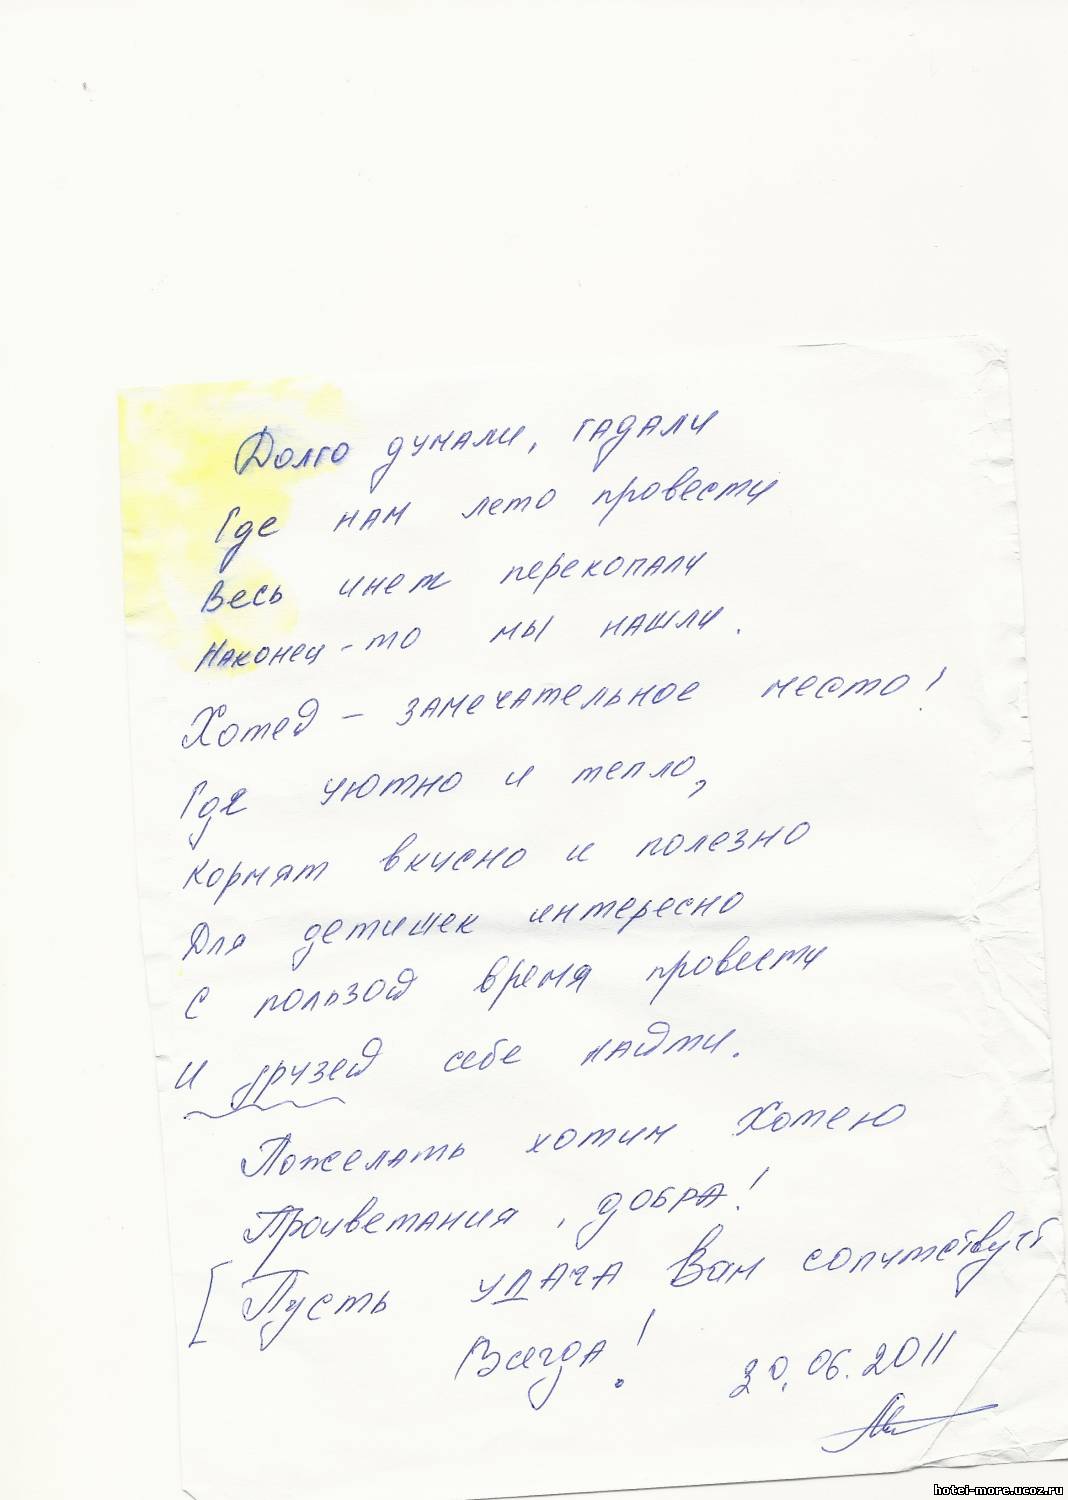 Долго думали, гадали
Где нам лето провести
Весь инет перекопали
Наконец-то мы нашли.
Хотей – замечательное место!
Где уютно и тепло,
Кормят вкусно и полезно
Для детишек интересно
С пользой время провести
И друзей себе найти.
Пожелать хотим Хотею
Процветания, добра!
Пусть удача Вам сопутствует
Всегда!
30.06.2011
hotei-more.ucoz.ru